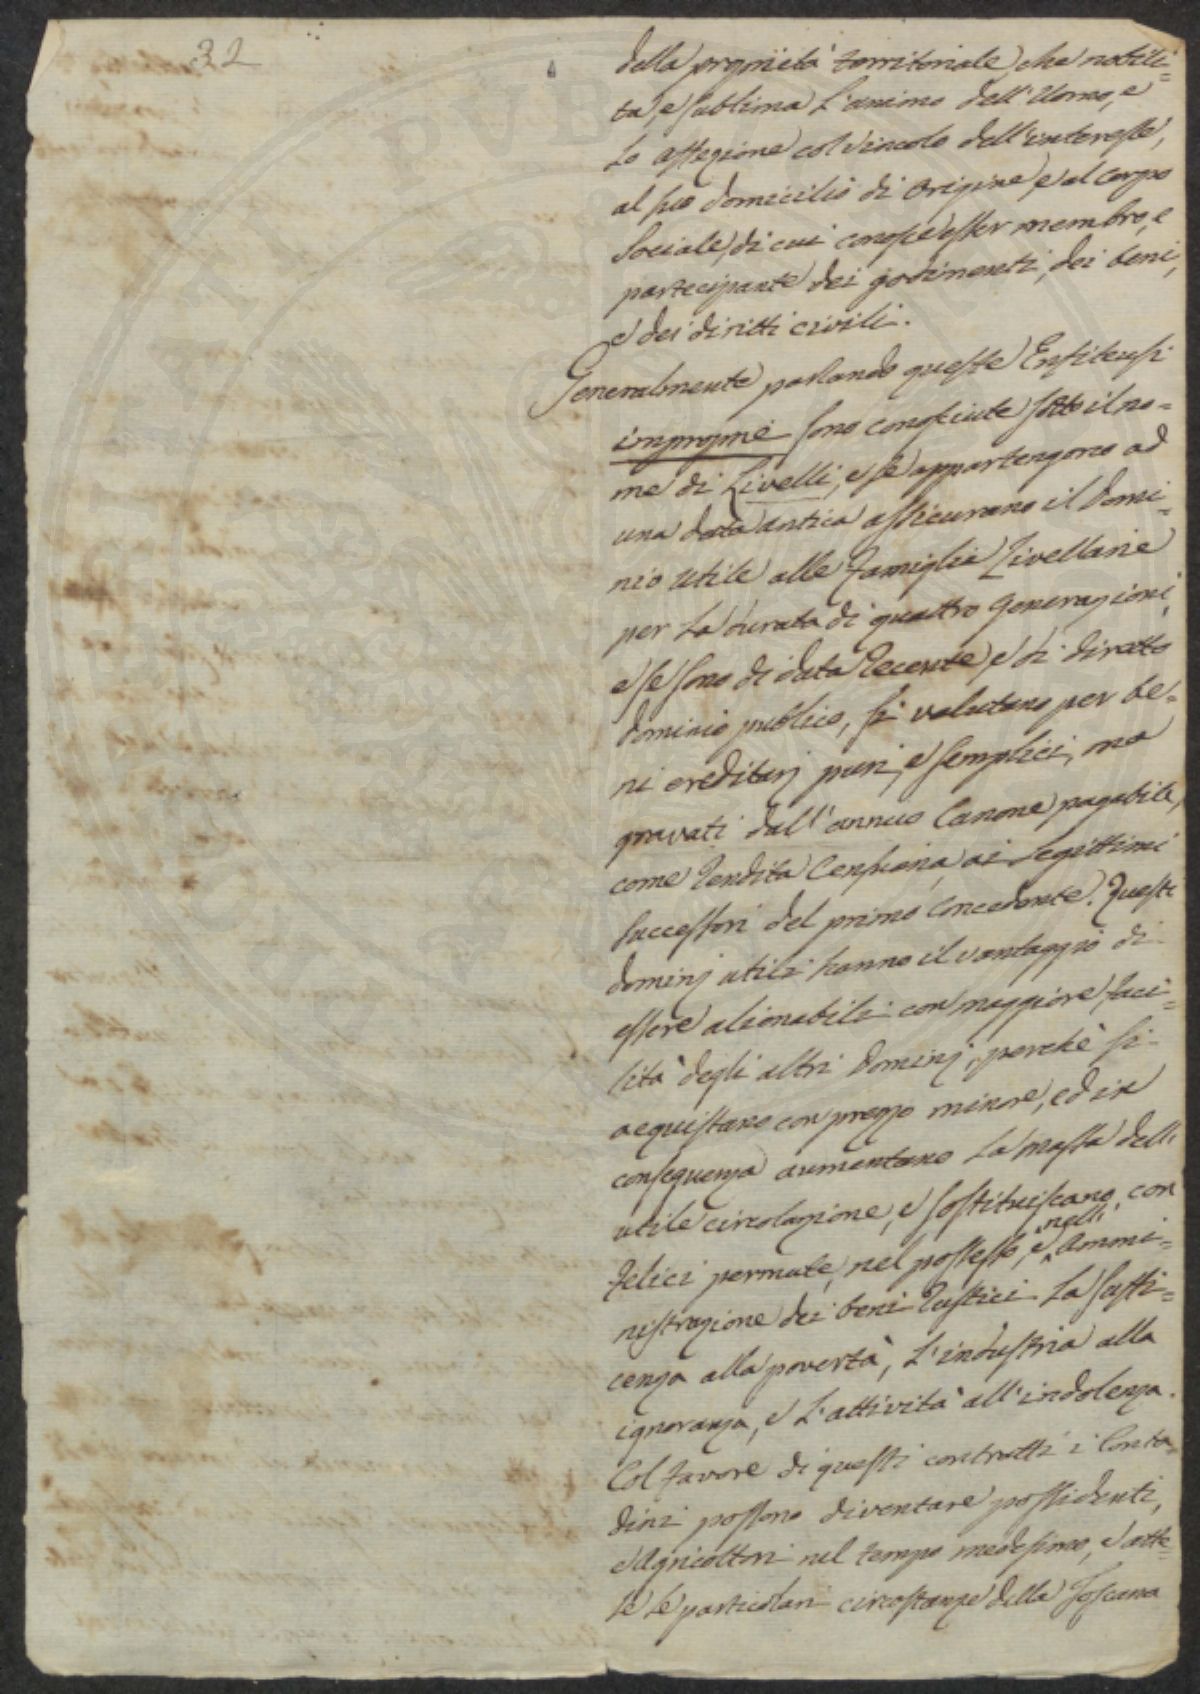 32
della proprietà territoriale, che nobili=
ta, e sublima l'animo dell'Uomo, e
lo affezione col vincolo dell'interesse,
al suo domicilio di origine, e al corpo
Sociale, di cui conosce esser membro, e
partecipante dei godimenti, dei beni,
e dei diritti civili.
Generalmente parlando queste Enfiteusi
improprie sono conosciute sotto il no=
me di Livelli, e se appartengono ad
una data antica assicurano il Domi=
nio utile alle famiglie Livellarie
per la durata di quattro generazioni,
e se sono di data recente, e di diretto
dominio publico, si valutano per be=
ni ereditarj puri, e semplici, ma
gravati dall'annuo Canone pagabile,
come rendita Censuaria, ai legittimi
successori del primo concedente. Questi
dominj utili hanno il vantaggio di
essere alienabili con maggiore faci=
lità degli altri Dominj, perchè si
acquistano con prezzo minore, ed in
conseguenza aumentano la massa dell
utile circolazione, e sostituiscano, con
felici permute, nel possesso, e nell' Ammi=
nistrazione dei beni rustici la suffi=
cenza alla povertà, l'industria alla
ignoranza, e l'attività all'indolenza.
Col favore di questi contratti i Conta=
dini possono diventare possidenti,
e Agricoltori nel tempo medesimo, e atte=
se le particolari circostanze della Toscana